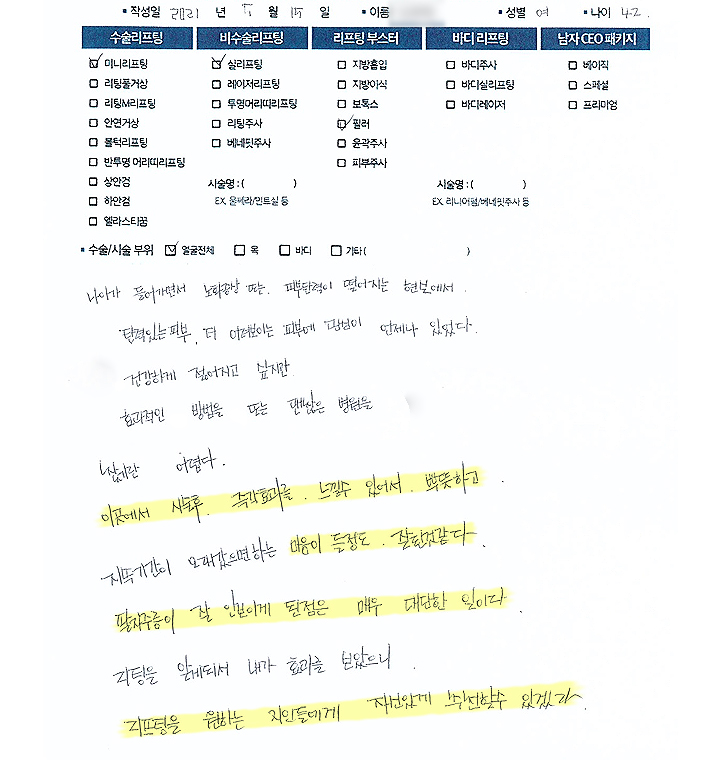 작성일 2021 년 5 월 15 일 이름 성별 여 나이 42.
수술리프팅 비수술리프팅 리프팅 부스터 바디 리프팅 남자 CEO 패키지
미니리프팅 실리프팅 지방흡입 바디주사 베이직
리팅풀거상 레이저리프팅 지방이식 바디실리프팅 스페셜
리팅M리프팅 투명머리띠리프팅 보톡스 바디레이저 프리미엄
안면거상 리팅주사 필러
볼턱리프팅 베네핏주사 윤곽주사
반투명 머리띠리프팅 피부주사
상안검 시술명 : ( ) 시술명 : ( )
하안검 EX. 울쎄라/민트실 등 EX. 리니어펌/베네핏주사 등
엘라스티꿈
수술/시술 부위 얼굴전체 목 바디 기타 ( )
나이가 들어가면서 노화현상 또는. 피부탄력이 떨어지는 현실에서.
탄력있는 피부, 더 어려보이는 피부에 관심이 언제나 있었다.
건강하게 젊어지고 싶지만
효과적인 방법을 또는 괜찮은 병원을
찾기란 어렵다.
이곳에서 시술후. 즉각효과를. 느낄수 있어서. 뿌듯하고.
지속기간이 오래갔으면하는 마음이 들정도. 잘된것같다.
팔자주름이 잘 안보이게 된점은 매우 대단한 일이다.
리팅을 알게되서 내가 효과를 보았으니.
리프팅을 원하는 지인들에게 자신있게 추천할수 있겠다.